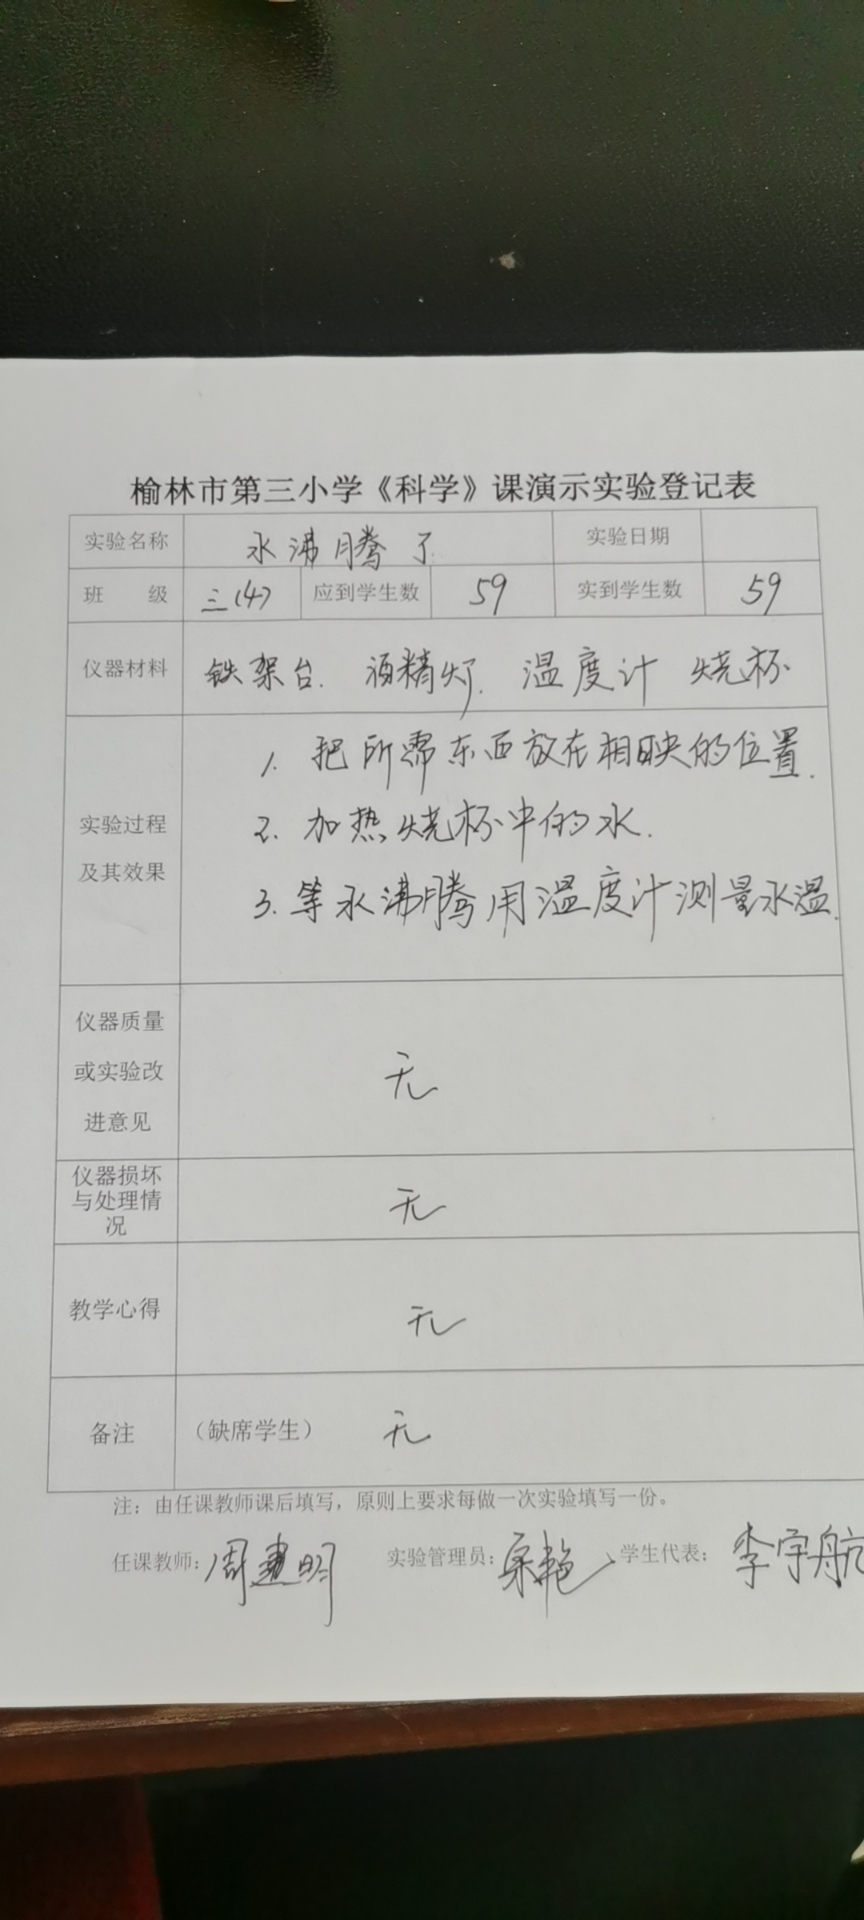 榆林市第三小学《科学》课演示实验登记表
实验名称 水沸腾了 实验日期
班 级 三(4) 应到学生数 59 实到学生数 59
仪器材料 铁架台. 酒精灯. 温度计 烧杯
实验过程
及其效果
1. 把所需东西放在相映的位置.
2. 加热烧杯中的水.
3. 等水沸腾用温度计测量水温.
仪器质量
或实验改
进意见
无
仪器损坏
与处理情
况
无
教学心得 无
备注 （缺席学生） 无
注：由任课教师课后填写，原则上要求每做一次实验填写一份。
任课教师：周建明 实验管理员： 学生代表：李宇航